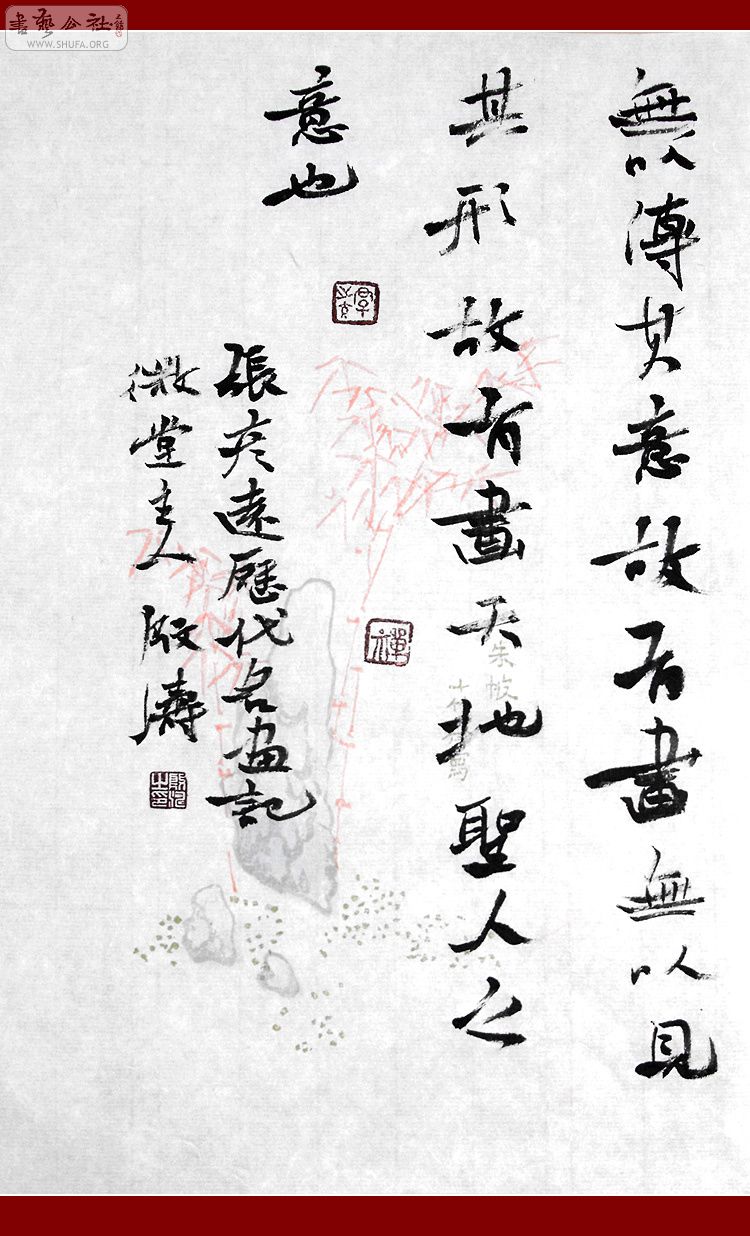 書藝公社
WWW.SHUFA.ORG
無以傳其意故有書無以見
其形故有畫天地聖人之
意也
張彦遠歷代名画記
微堂主人濤